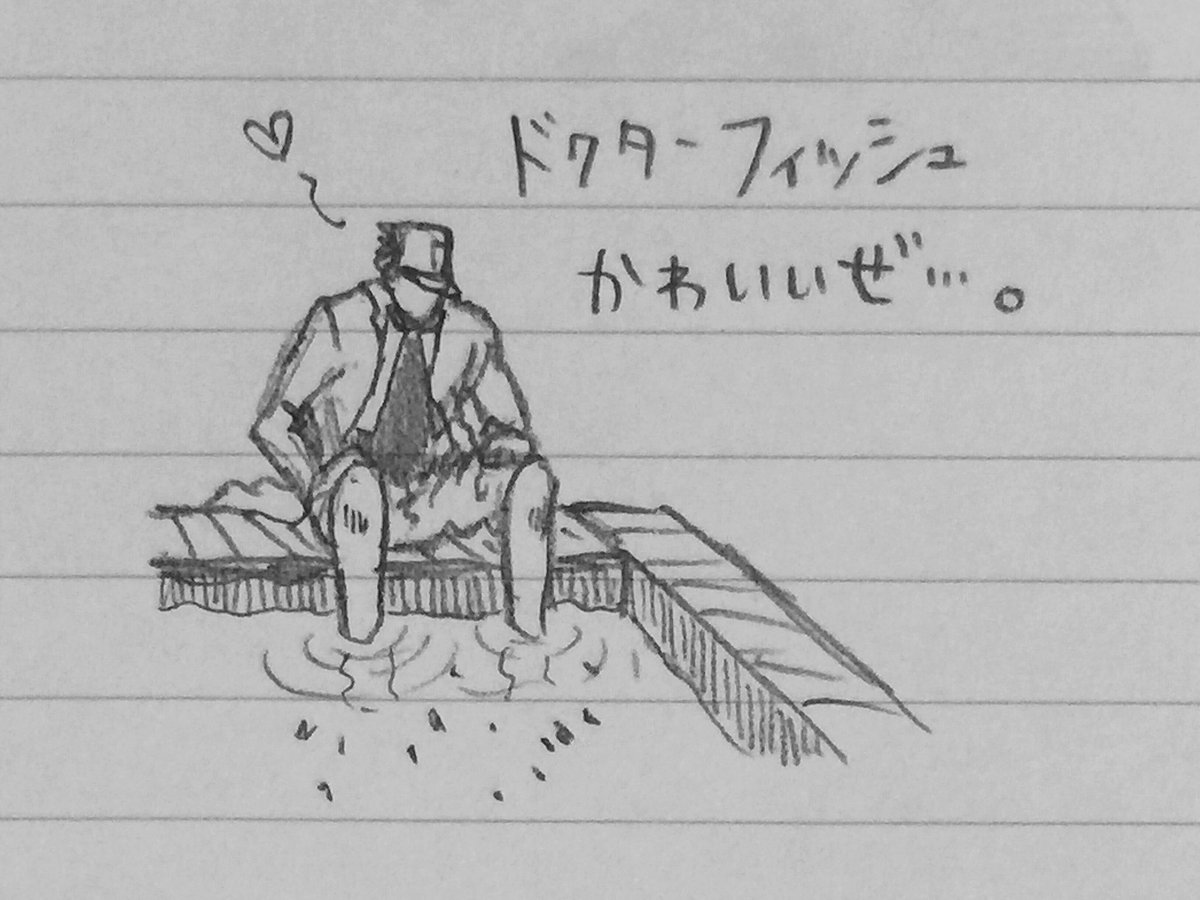 ドクターフィッシュ
かわいいぜ…。